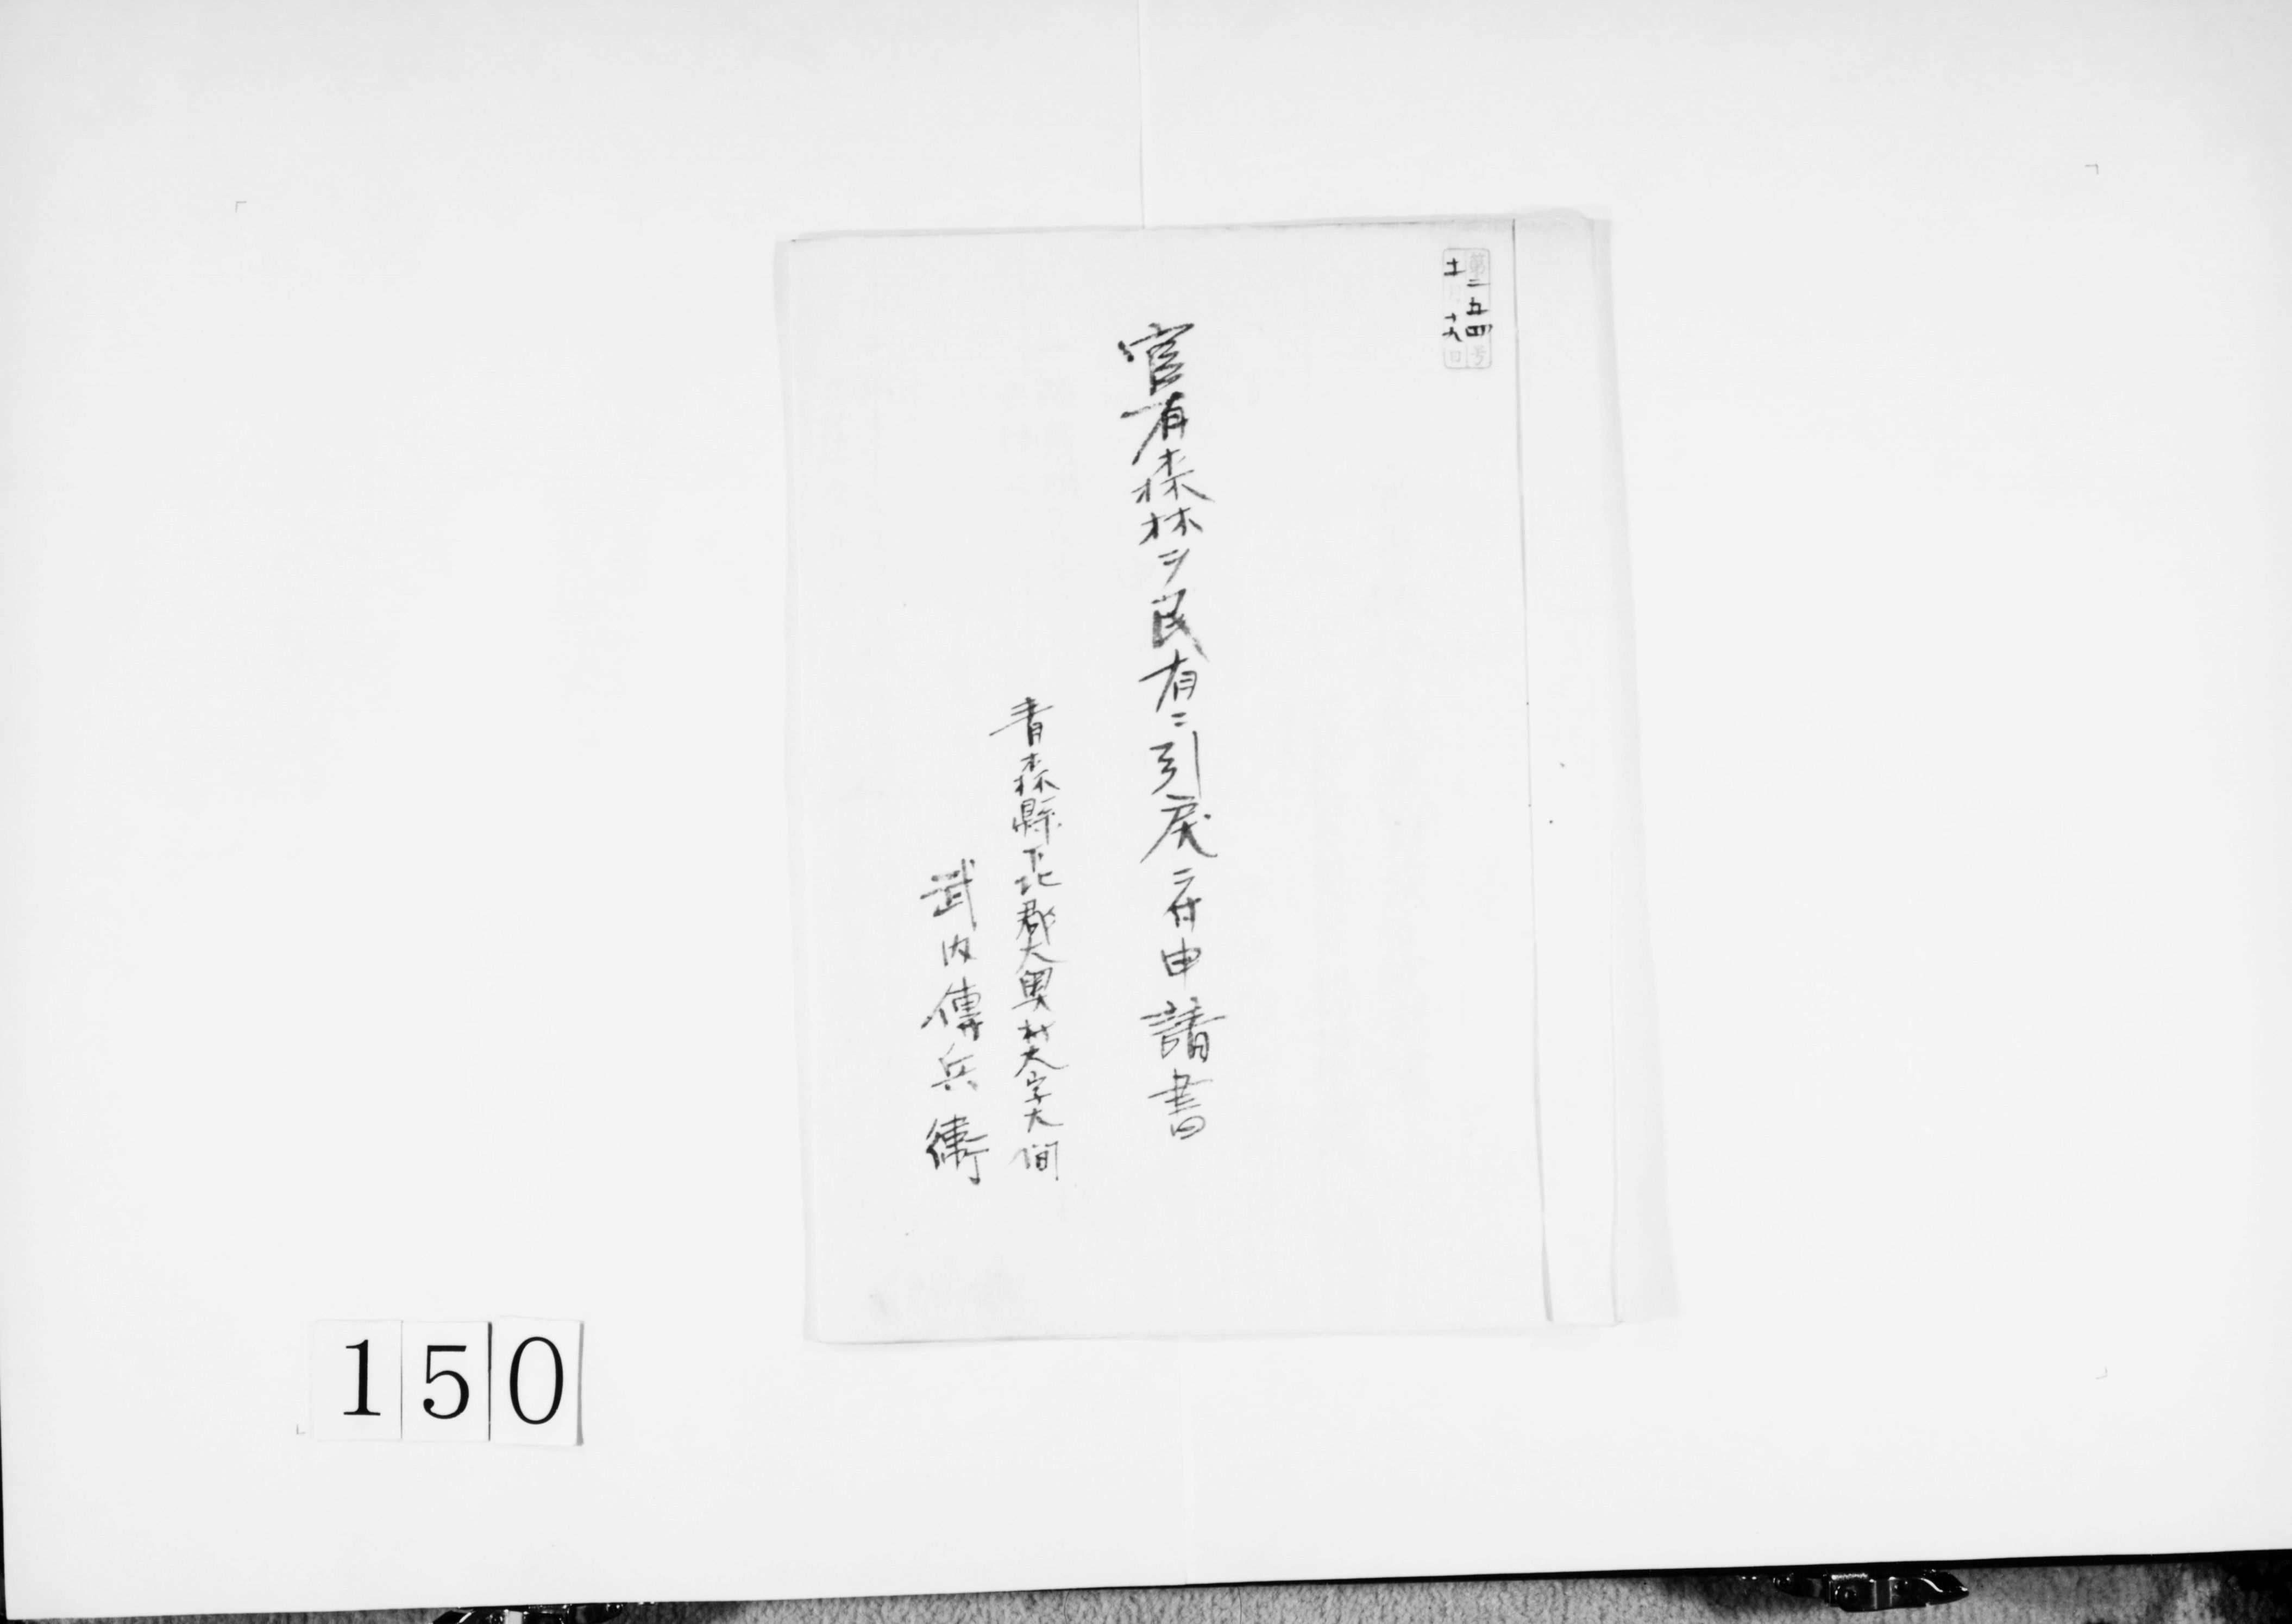 第二五四号
十一月十九日
官有森林ヲ民有ニ引戻ニ付申請書
青森縣下北郡大奥村大字大間
武内傳兵衛
150